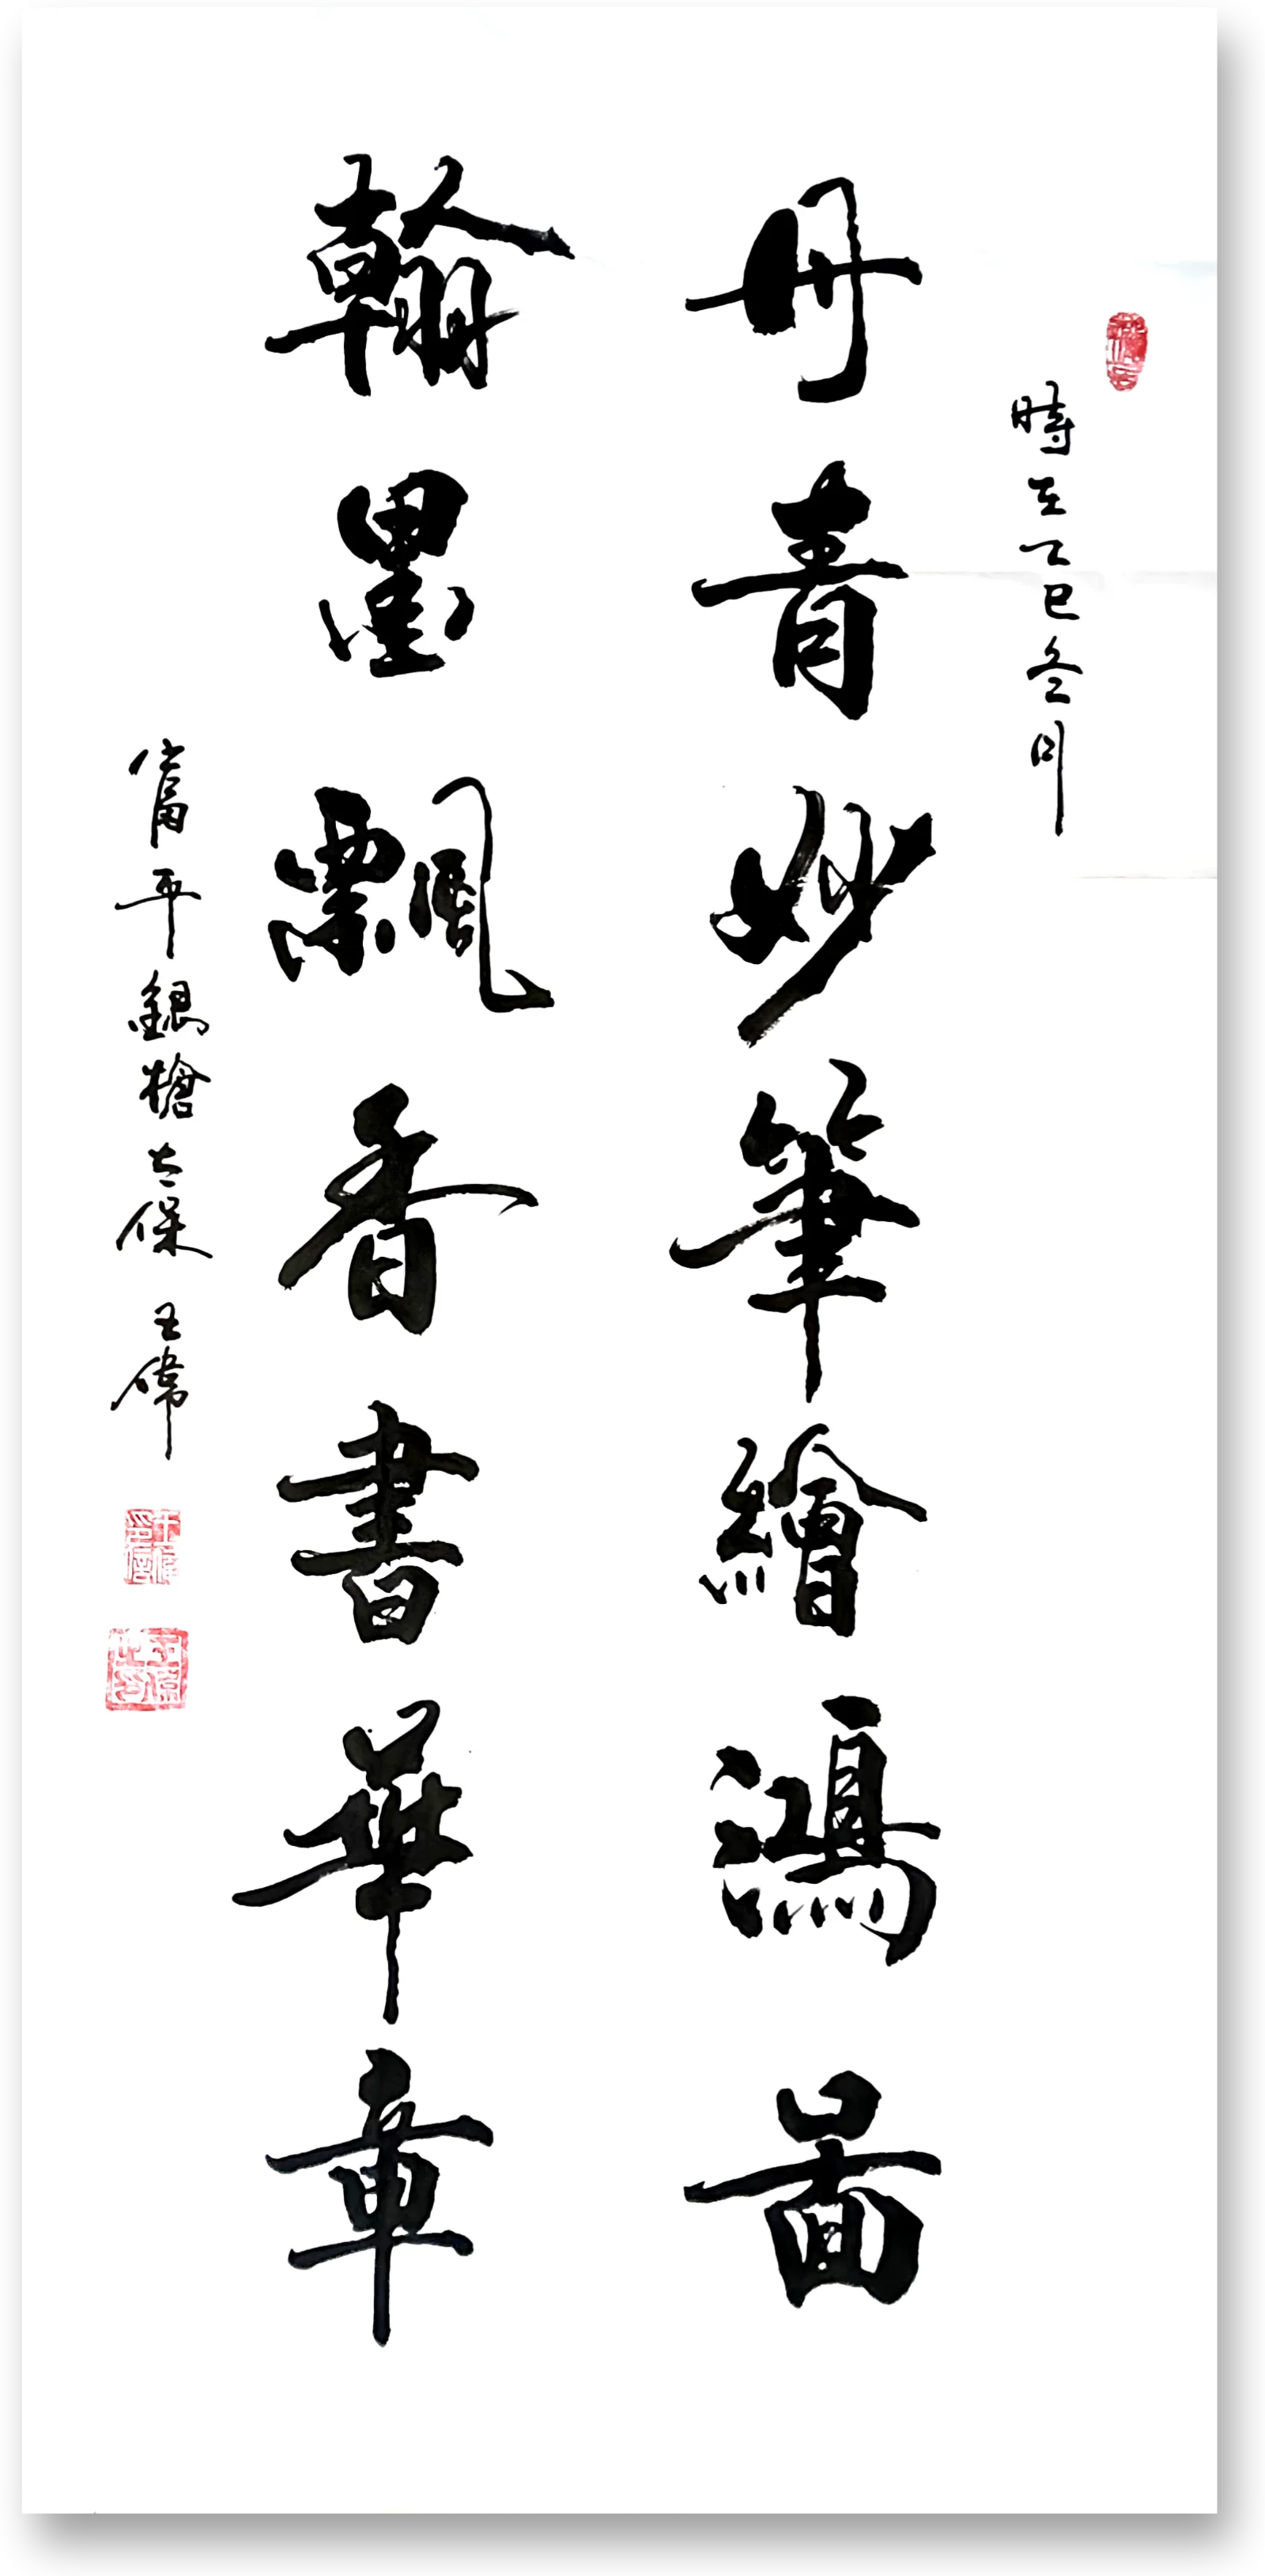 時在乙巳冬月
丹青妙筆繪鴻圖
翰墨飄香書華章
富平銀槍太保 王偉